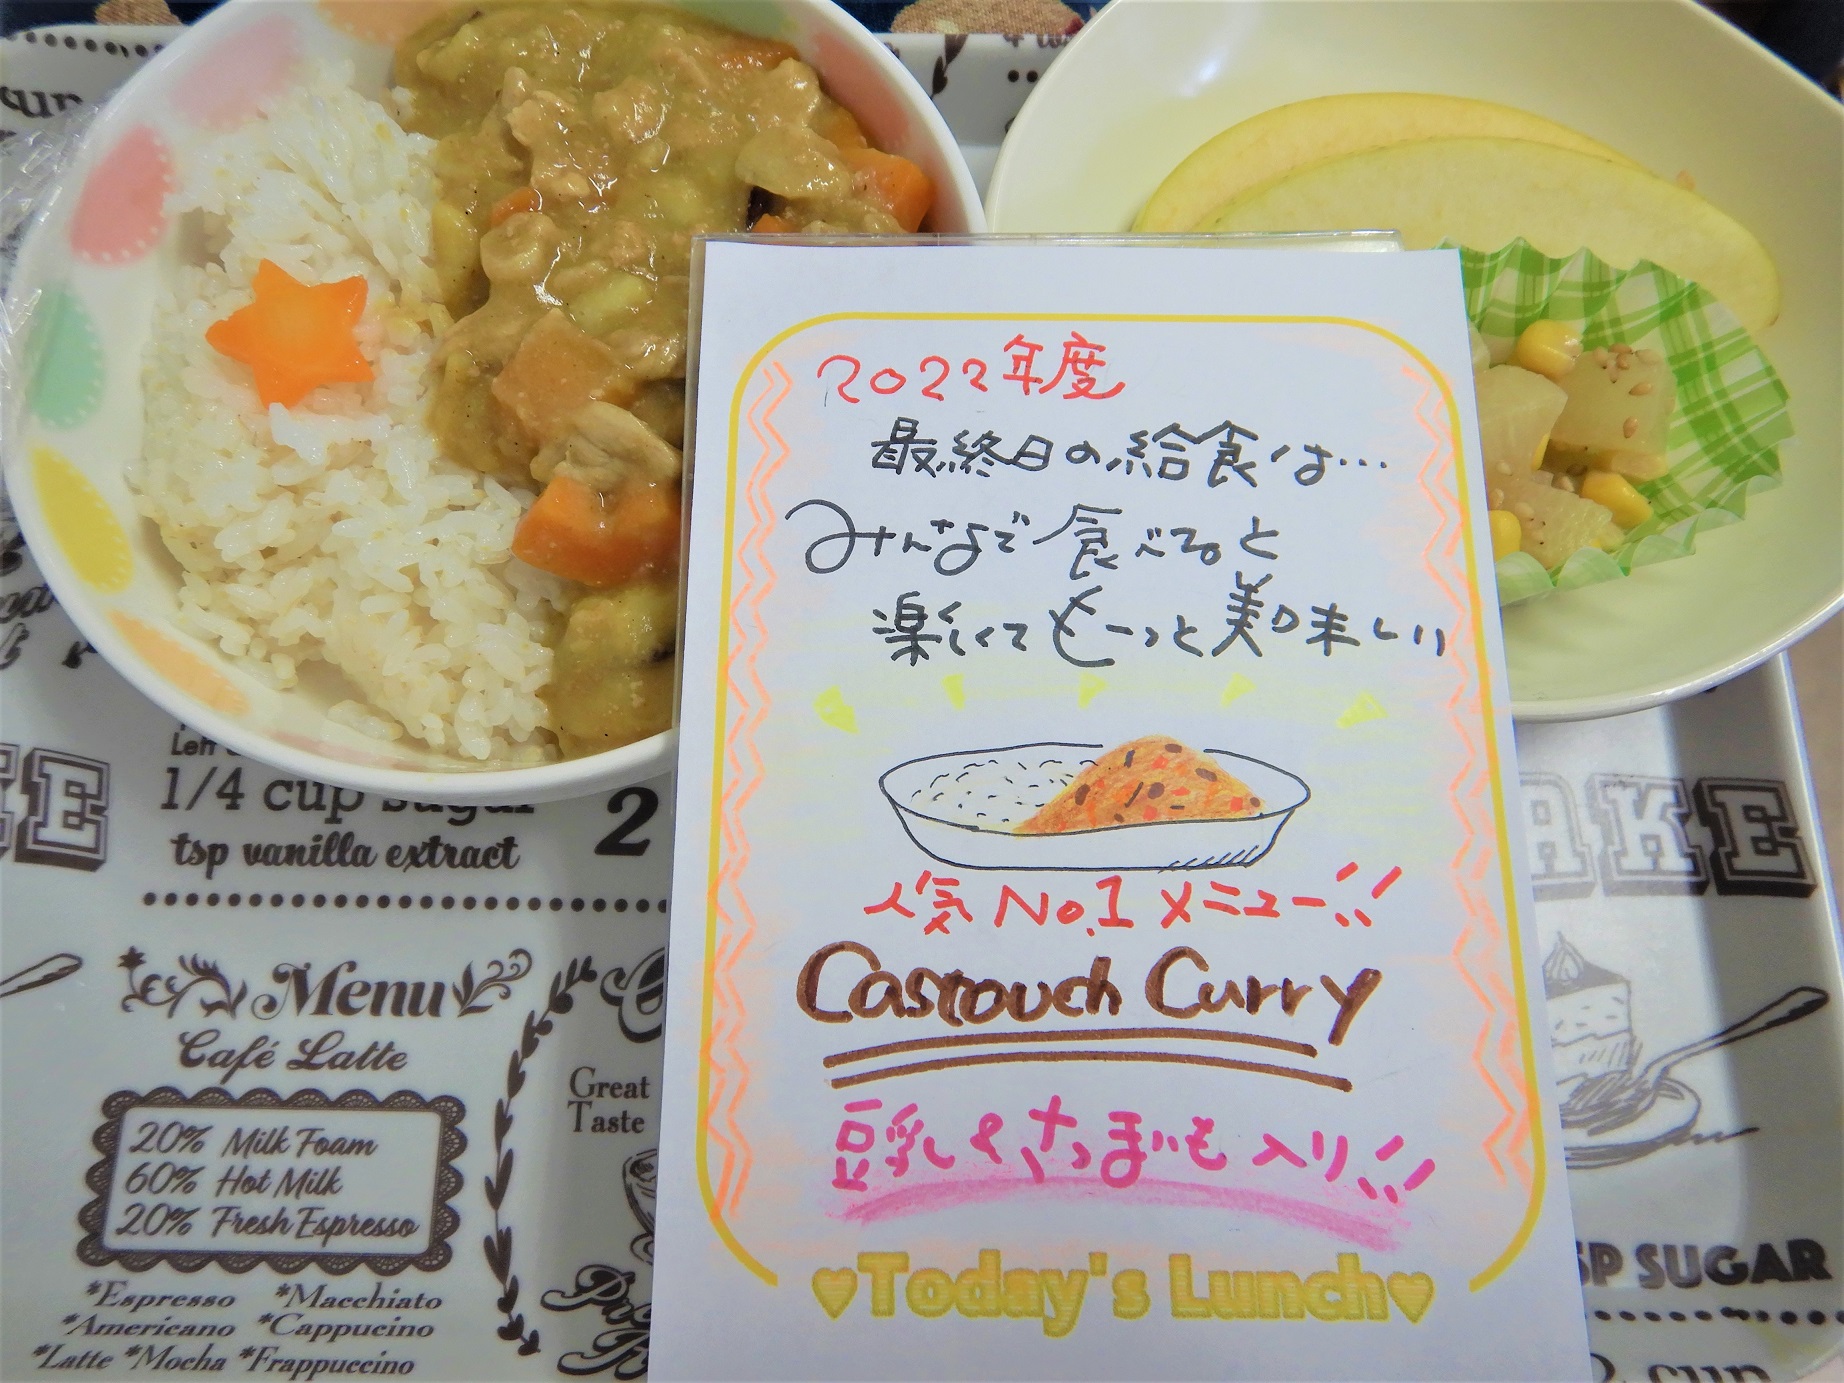 2022年度
最終日の給食は…
みんなで食べると
楽しくてもーっと美味しい
人気No.1メニュー!!
Castouch Curry
豆乳&さつまいも入り!!
♥Today's Lunch♥
1/4 cup sugar
tsp vanilla extract
2
Menu
Café Latte
20% Milk Foam
60% Hot Milk
20% Fresh Espresso
*Espresso *Macchiato
*Americano *Cappucino
*Latte *Mocha *Frappuccino
Great
Taste
AKE
SP SUGAR
cup